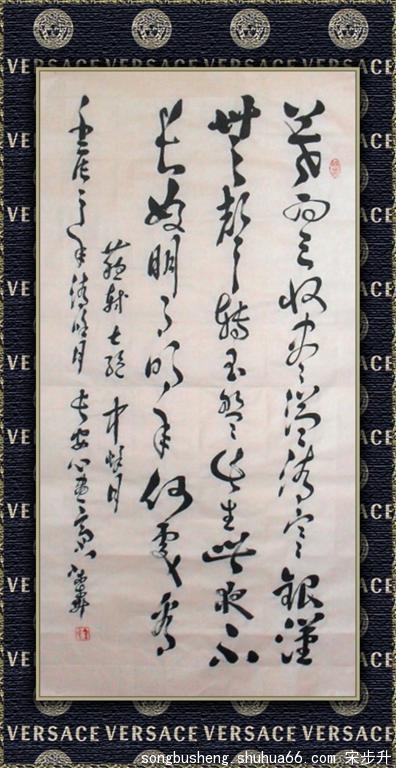 VERSACE VERSACE VERSACE VERSACE
暮雲收盡溢清寒銀漢
無聲轉玉盤此生此夜不
長好明月明年何處看
蘇軾七絕 中秋月
壬辰之年清明月 長安
VERSACE VERSACE VERSACE VERSACE
songbusheng.shuhua66.com 宋步升